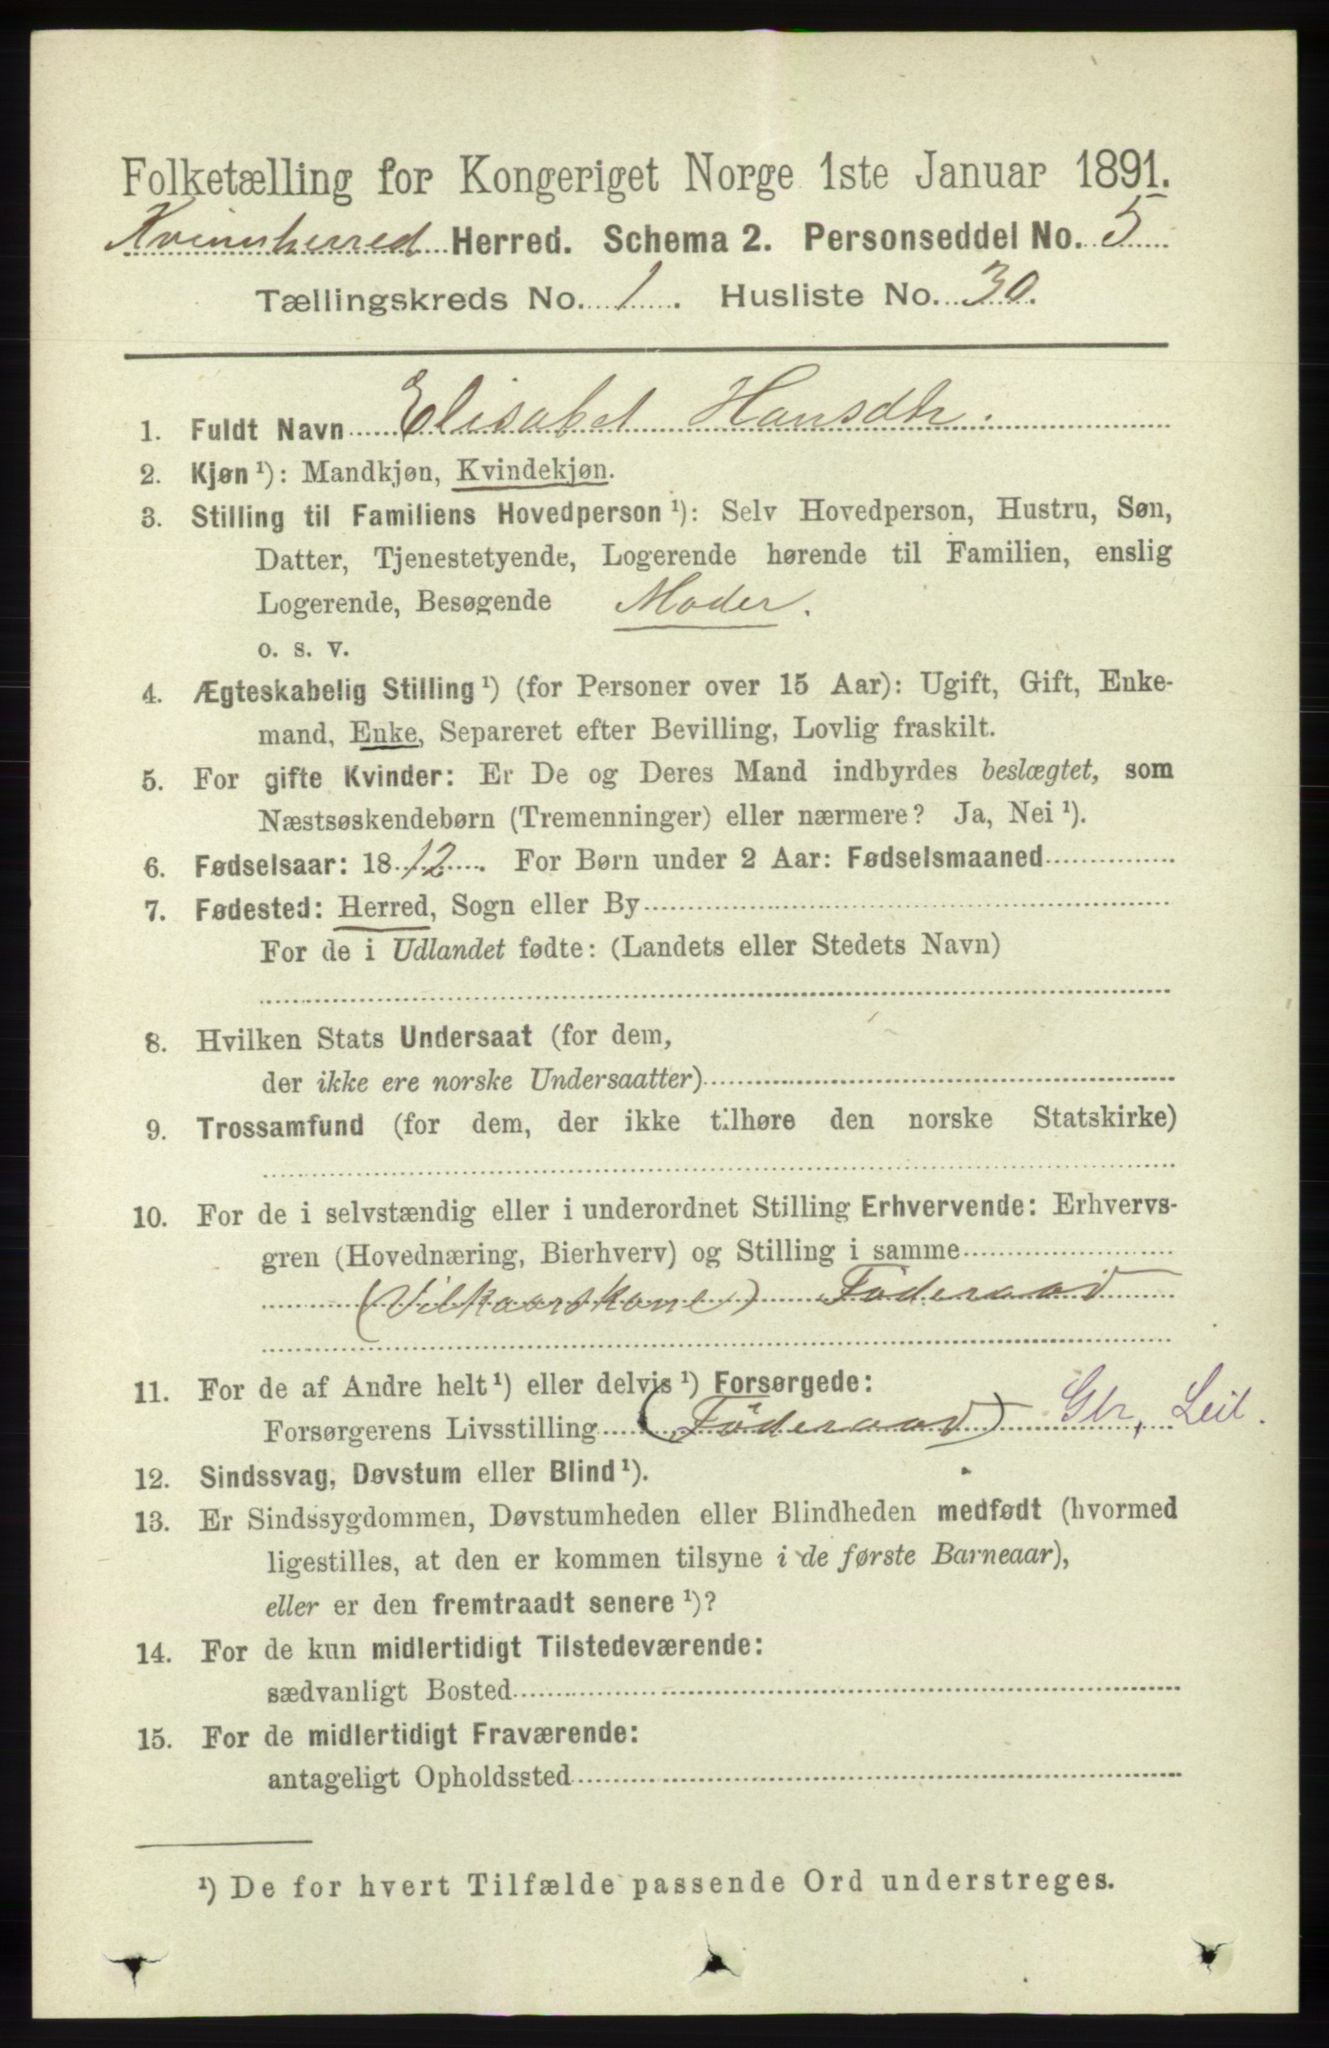 Folketælling for Kongeriget Norge 1ste Januar 1891.
Kvinnherred Herred. Schema 2. Personseddel No. 5
Tællingskreds No. 1. Husliste No. 30.
1. Fuldt Navn Elisabet Hansdtr.
2. Kjøn¹): Mandkjøn, Kvindekjøn.
3. Stilling til Familiens Hovedperson¹): Selv Hovedperson, Hustru, Søn,
Datter, Tjenestetyende, Logerende hørende til Familien, enslig
Logerende, Besøgende Moder.
o. s. v.
4. Ægteskabelig Stilling¹) (for Personer over 15 Aar): Ugift, Gift, Enke-
mand, Enke, Separeret efter Bevilling, Lovlig fraskilt.
5. For gifte Kvinder: Er De og Deres Mand indbyrdes beslægtet, som
Næstsøskendebørn (Tremenninger) eller nærmere? Ja, Nei¹).
6. Fødselsaar: 1812. For Børn under 2 Aar: Fødselsmaaned
7. Fødested: Herred, Sogn eller By
For de i Udlandet fødte: (Landets eller Stedets Navn)
8. Hvilken Stats Undersaat (for dem,
der ikke ere norske Undersaatter)
9. Trossamfund (for dem, der ikke tilhøre den norske Statskirke)
10. For de i selvstændig eller i underordnet Stilling Erhvervende: Erhvervs-
gren (Hovednæring, Bierhverv) og Stilling i samme
(Vilkaarskone) Föderaad
11. For de af Andre helt¹) eller delvis¹) Forsørgede:
Forsørgerens Livsstilling (Föderaad) Gbr, Leil.
12. Sindssvag, Døvstum eller Blind¹).
13. Er Sindssygdommen, Døvstumheden eller Blindheden medfødt (hvormed
ligestilles, at den er kommen tilsyne i de første Barneaar),
eller er den fremtraadt senere¹)?
14. For de kun midlertidigt Tilstedeværende:
sædvanligt Bosted
15. For de midlertidigt Fraværende:
antageligt Opholdssted
¹) De for hvert Tilfælde passende Ord understreges.